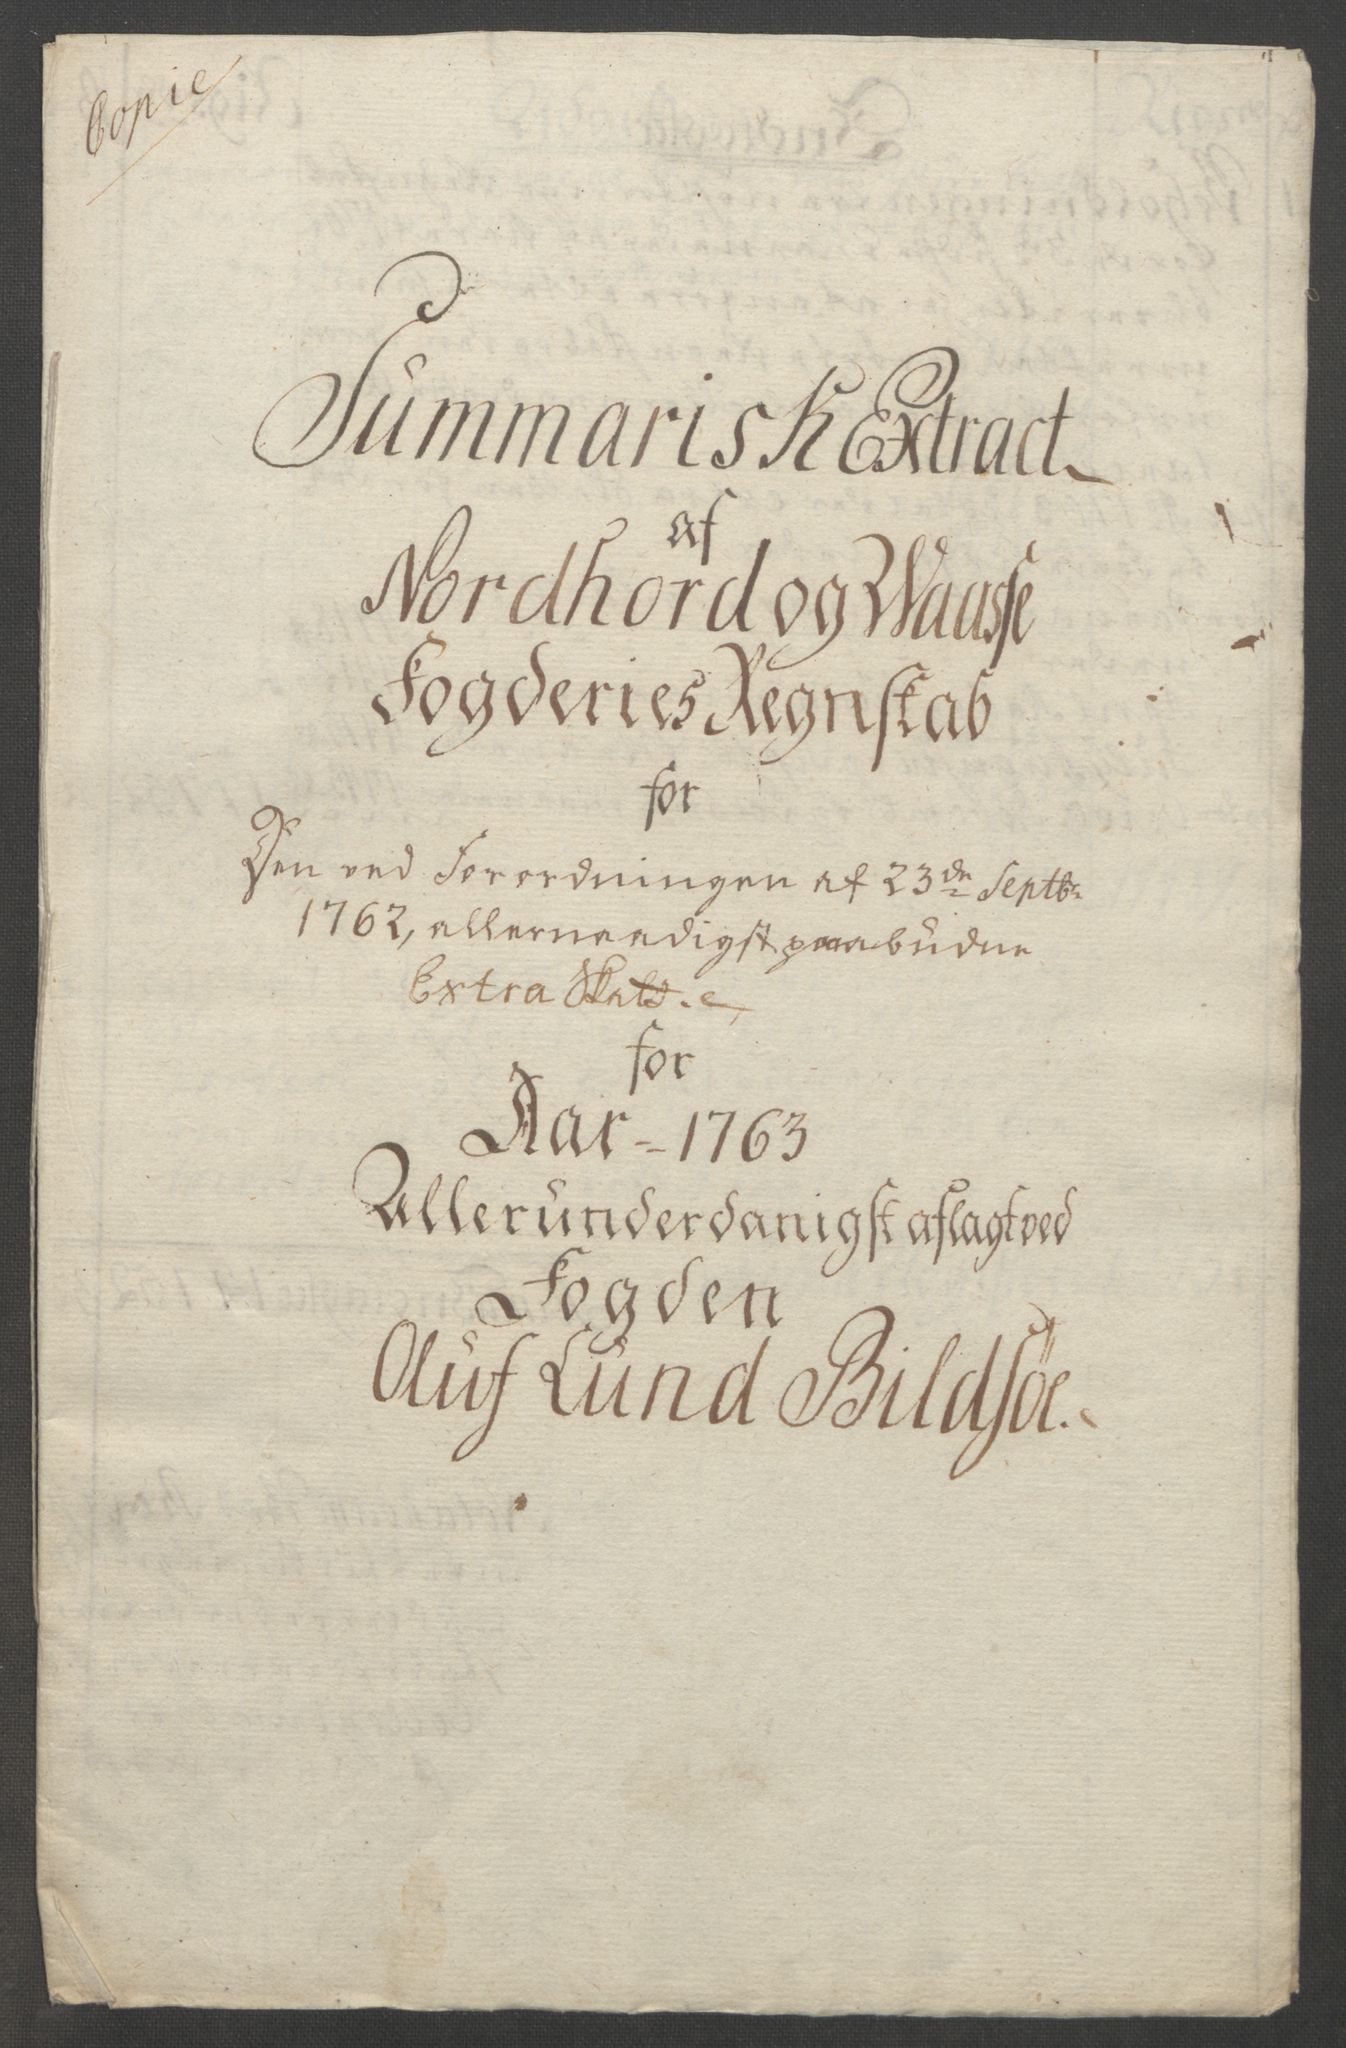 Copie
Summarisk Extract
af
Nordhord og Waasse
Fogderies Regnskab
for
Den ved Forordningen af 23de Septbr
1762, allernaadigst paabudne
Extra Skatt
for
Aar - 1763
Allerunderdanigst aflagt ved
Fogden
Oluf Lund Bildsöe.